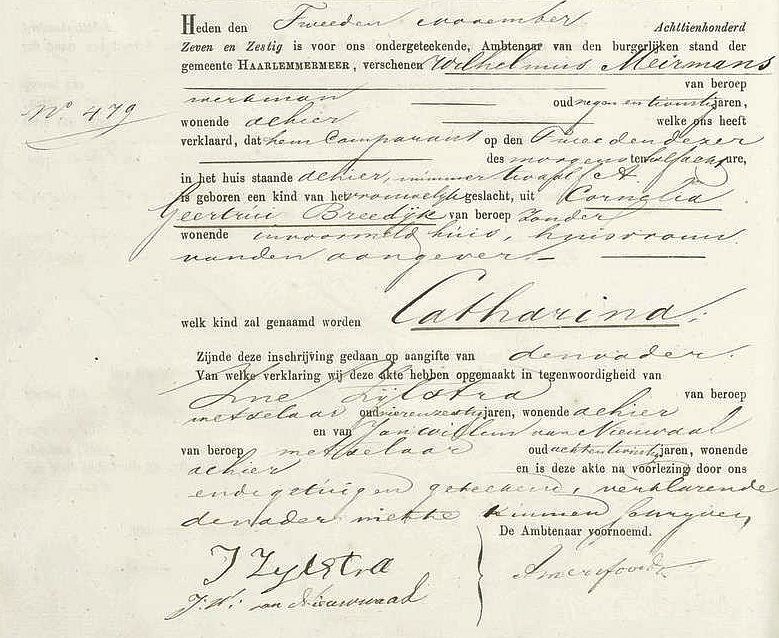 Heden den Tweeden November Achttienhonderd
Zeven en Zestig is voor ons ondergeteekende, Ambtenaar van den burgerlijken stand der
gemeente HAARLEMMERMEER, verschenen Wilhelmus Meirmans
van beroep
N° 479
werkman oud negen en twintig jaren,
wonende alhier welke ons heeft
verklaard, dat hem Comparant op den Tweeden dezer
des morgens ten half acht ure,
in het huis staande alhier, nummer twaalf A
is geboren een kind van het vrouwelijk geslacht, uit Cornelia
Geertrui Breedijk van beroep Zonder
wonende in voormeld huis, huisvrouw
van den aangever
welk kind zal genaamd worden Catharina.
Zijnde deze inschrijving gedaan op aangifte van den vader.
Van welke verklaring wij deze akte hebben opgemaakt in tegenwoordigheid van
Zylstra van beroep
metselaar oud jaren, wonende alhier
en van Jan Willem van Nieuwaal
van beroep metselaar oud acht en twintig jaren, wonende
alhier en is deze akte na voorlezing door ons
en de getuigen geteekend, verklarende
den vader niet te kunnen schryven
De Ambtenaar voornoemd.
J Zylstra
J. W. van Nieuwaal
Amersfoordt